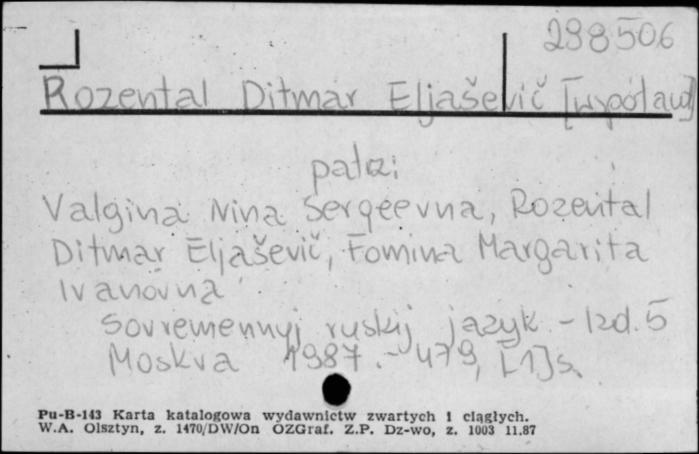 298506
Rozental Ditmar Eljašević [współaut]
patrz:
Valgina Nina Sergeevna, Rozental
Ditmar Eljašević, Fomina Margarita
Ivanovna
Sovremennyj ruskij jazyk. - Izd. 5
Moskva 1987. - 479, [1] s.
Pu-B-143 Karta katalogowa wydawnictw zwartych i ciągłych.
W.A. Olsztyn, z. 1470/DW/On OZGraf. Z.P. Dz-wo, z. 1003 11.87